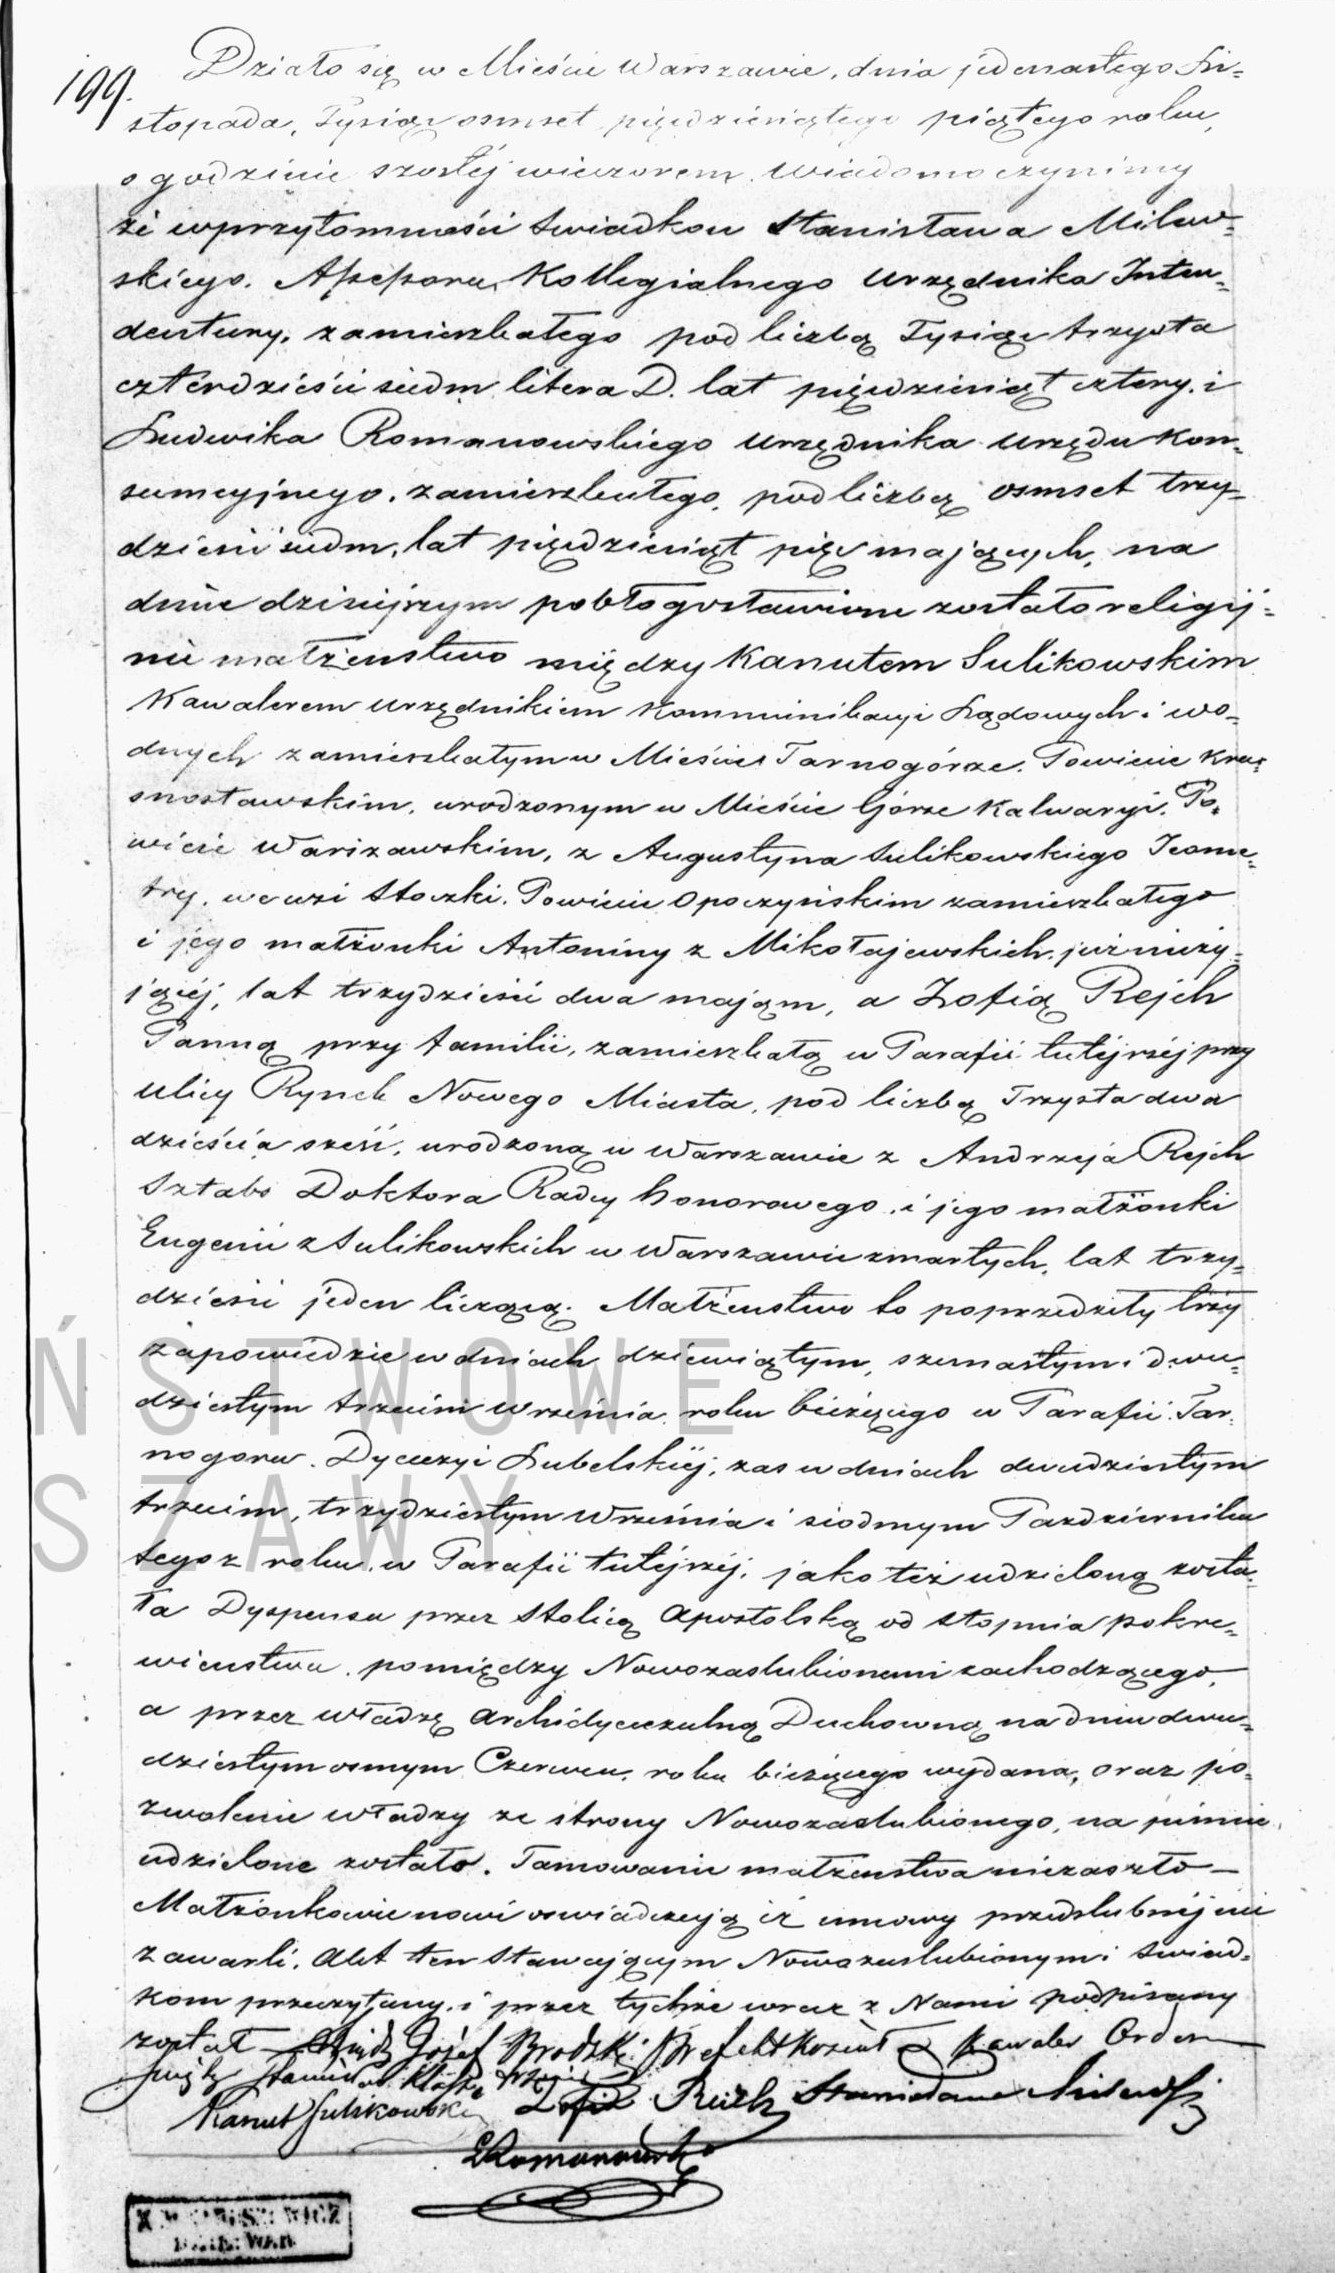 199.
Działo się w Mieście Warszawie, dnia jedenastego Li=
stopada, Tysiąc osmset pięćdziesiątego piątego roku,
o godzinie szóstéj wieczorem. Wiadomo czynimy
że w przytomności świadków Stanisława Milew=
skiego, Assessora Kollegialnego Urzędnika Inten=
dentury, zamieszkałego pod liczbą Tysiąc trzysta
czterdzieści siedm litera D. lat pięćdziesiąt cztery, i
Ludwika Romanowskiego Urzędnika Urzędu Kon=
sumcyjnego, zamieszkałego, pod liczbą osmset trzy=
dzieści siedm, lat pięćdziesiąt pięć mających, na
dniu dzisiejszym pobłogosławione zostało religij=
nie małżeństwo między Kanutem Sulikowskim
Kawalerem Urzędnikiem Kommunikacyi Lądowych i wo=
dnych zamieszkałym w Mieście Tarnogórze, Powiecie Kra=
snostawskim, urodzonym w Mieście Górze Kalwaryi, Po=
wiecie Warszawskim, z Augustyna Sulikowskiego Jeome=
try, we wsi Stoczki, Powiecie Opoczyńskim zamieszkałego
i jego małżonki Antoniny z Mikołajewskich, już nieży=
jącéj, lat trzydzieści dwa mającym, a Zofią Rejch
Panną przy familii, zamieszkałą w Parafii tutéjszéj przy
ulicy Rynek Nowego Miasta, pod liczbą Trzysta dwa
dzieścia sześć, urodzoną w Warszawie z Andrzeja Rejch
Sztabs Doktora Radcy honorowego, i jego małżonki
Eugenii z Sulikowskich w Warszawie zmarłych, lat trzy=
dzieści jeden liczącą. Małżeństwo to poprzedziły trzy
zapowiedzie w dniach dziewiątym, szesnastym i dwu=
dziestym trzecim Września roku bieżącego w Parafii Tar=
nogora, Dyecezyi Lubelskiéj, zaś w dniach dwudziestym
trzecim, trzydziestym Września i siódmym Października
tegoż roku, w Parafii tutéjszéj, jako też udzieloną zosta=
ła Dyspensa przez Stolicę Apostolską od stopnia pokre=
wieństwa, pomiędzy Nowozaślubionemi zachodzącego,
a przez władzę Archidyecezalną Duchowną na dniu dwu=
dziestym osmym Czerwca, roku bieżącego wydana, oraz po=
zwolenie władzy ze strony Nowozaślubionego, na piśmie
udzielone zostało. Tamowanie małżeństwa nie zaszło —
Małżonkowie nowi oświadczają iż umowy przedślubnéj nie
zawarli. Akt ten Stawającym Nowozaślubionym i świad=
kom przeczytany, i przez tychże wraz z Nami podpisany
został — Xiądz Józef Brodzki Prefekt Kościoła Kawaler Orderu
Święty Stanisław Klassę trzecią
Kanut Sulikowski Zofia Reich Stanisław Milewski
LRomanowski
ŃSTWOWE
SZAWY